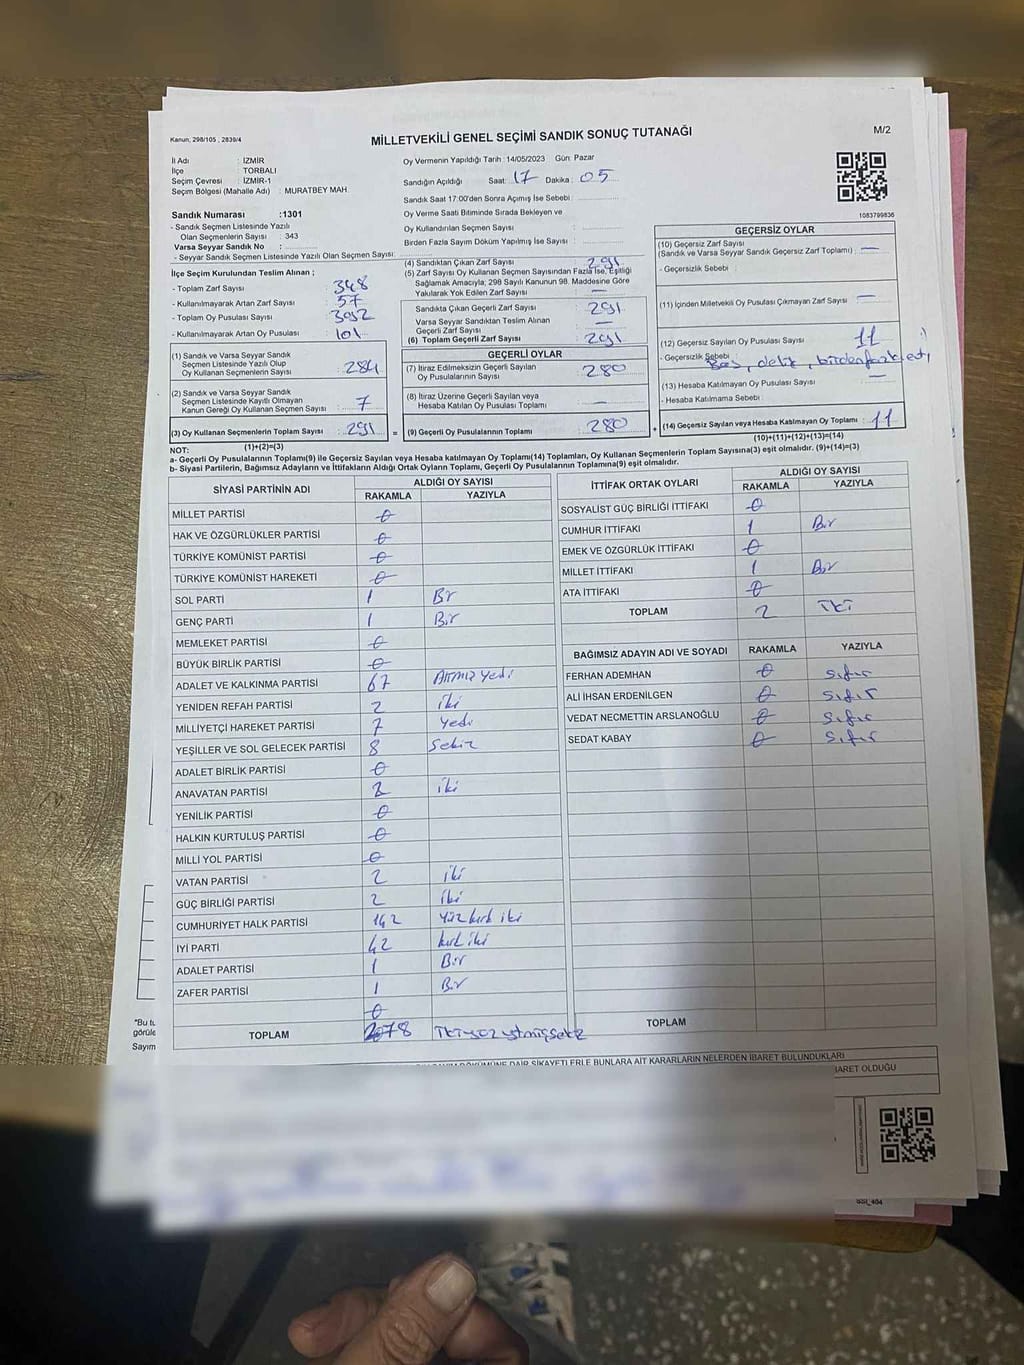 Kanun; 298/105 , 2839/4
MİLLETVEKİLİ GENEL SEÇİMİ SANDIK SONUÇ TUTANAĞI
M/2
İl Adı : İZMİR
İlçe : TORBALI
Seçim Çevresi : İZMİR-1
Seçim Bölgesi (Mahalle Adı) : MURATBEY MAH.
Sandık Numarası :1301
- Sandık Seçmen Listesinde Yazılı
Olan Seçmenlerin Sayısı : 343
Varsa Seyyar Sandık No :
- Seyyar Sandık Seçmen Listesinde Yazılı Olan Seçmen Sayısı:
İlçe Seçim Kurulundan Teslim Alınan ;
- Toplam Zarf Sayısı : 348
- Kullanılmayarak Artan Zarf Sayısı : 57
- Toplam Oy Pusulası Sayısı : 392
- Kullanılmayarak Artan Oy Pusulası : 101
(1) Sandık ve Varsa Seyyar Sandık
Seçmen Listesinde Yazılı Olup
Oy Kullanan Seçmenlerin Sayısı : 284
(2) Sandık ve Varsa Seyyar Sandık
Seçmen Listesinde Kayıtlı Olmayan
Kanun Gereği Oy Kullanan Seçmen Sayısı : 7
(3) Oy Kullanan Seçmenlerin Toplam Sayısı : 291
(1)+(2)=(3)
Oy Vermenin Yapıldığı Tarih : 14/05/2023 Gün: Pazar
Sandığın Açıldığı Saat: 17 Dakika : 05
Sandık Saat 17:00'den Sonra Açımış İse Sebebi :
Oy Verme Saati Bitiminde Sırada Bekleyen ve
Oy Kullandırılan Seçmen Sayısı :
Birden Fazla Sayım Döküm Yapılmış İse Sayısı :
(4) Sandıktan Çıkan Zarf Sayısı : 291
(5) Zarf Sayısı Oy Kullanan Seçmen Sayısından Fazla İse, Eşitliği
Sağlamak Amacıyla, 298 Sayılı Kanunun 98. Maddesine Göre
Yakılarak Yok Edilen Zarf Sayısı : —
Sandıkta Çıkan Geçerli Zarf Sayısı : 291
Varsa Seyyar Sandıktan Teslim Alınan
Geçerli Zarf Sayısı : —
(6) Toplam Geçerli Zarf Sayısı : 291
GEÇERLİ OYLAR
(7) İtiraz Edilmeksizin Geçerli Sayılan
Oy Pusulalarının Sayısı : 280
(8) İtiraz Üzerine Geçerli Sayılan veya
Hesaba Katılan Oy Pusulası Toplamı : —
= (9) Geçerli Oy Pusulalarının Toplamı : 280 +
1083799836
GEÇERSİZ OYLAR
(10) Geçersiz Zarf Sayısı
(Sandık ve Varsa Seyyar Sandık Geçersiz Zarf Toplamı) : —
- Geçersizlik Sebebi :
(11) İçinden Milletvekili Oy Pusulası Çıkmayan Zarf Sayısı : —
(12) Geçersiz Sayılan Oy Pusulası Sayısı : 11
- Geçersizlik Sebebi :
(13) Hesaba Katılmayan Oy Pusulası Sayısı : —
- Hesaba Katılmama Sebebi :
(14) Geçersiz Sayılan veya Hesaba Katılmayan Oy Toplamı : 11
(10)+(11)+(12)+(13)=(14)
NOT:
a- Geçerli Oy Pusulalarının Toplamı(9) ile Geçersiz Sayılan veya Hesaba Katılmayan Oy Toplamı(14) Toplamları, Oy Kullanan Seçmenlerin Toplam Sayısına(3) eşit olmalıdır. (9)+(14)=(3)
b- Siyasi Partilerin, Bağımsız Adayların ve İttifakların Aldığı Ortak Oyların Toplamı, Geçerli Oy Pusulalarının Toplamına(9) eşit olmalıdır.
SİYASİ PARTİNİN ADI
ALDIĞI OY SAYISI
RAKAMLA YAZIYLA
MİLLET PARTİSİ 0
HAK VE ÖZGÜRLÜKLER PARTİSİ 0
TÜRKİYE KOMÜNİST PARTİSİ 0
TÜRKİYE KOMÜNİST HAREKETİ 0
SOL PARTİ 1 Bir
GENÇ PARTİ 1 Bir
MEMLEKET PARTİSİ 0
BÜYÜK BİRLİK PARTİSİ 0
ADALET VE KALKINMA PARTİSİ 67 Altmış yedi
YENİDEN REFAH PARTİSİ 2 iki
MİLLİYETÇİ HAREKET PARTİSİ 7 yedi
YEŞİLLER VE SOL GELECEK PARTİSİ 8 sekiz
ADALET BİRLİK PARTİSİ 0
ANAVATAN PARTİSİ 2 iki
YENİLİK PARTİSİ 0
HALKIN KURTULUŞ PARTİSİ 0
MİLLİ YOL PARTİSİ 0
VATAN PARTİSİ 2 iki
GÜÇ BİRLİĞİ PARTİSİ 2 iki
CUMHURİYET HALK PARTİSİ 142 Yüz kırk iki
İYİ PARTİ 42 kırk iki
ADALET PARTİSİ 1 Bir
ZAFER PARTİSİ 1 Bir
0
TOPLAM 278 ikiyüzyetmişsekiz
İTTİFAK ORTAK OYLARI
ALDIĞI OY SAYISI
RAKAMLA YAZIYLA
SOSYALİST GÜÇ BİRLİĞİ İTTİFAKI 0
CUMHUR İTTİFAKI 1 Bir
EMEK VE ÖZGÜRLÜK İTTİFAKI 0
MİLLET İTTİFAKI 1 Bir
ATA İTTİFAKI 0
TOPLAM 2 iki
BAĞIMSIZ ADAYIN ADI VE SOYADI RAKAMLA YAZIYLA
FERHAN ADEMHAN 0 sıfır
ALİ İHSAN ERDENİLGEN 0 sıfır
VEDAT NECMETTİN ARSLANOĞLU 0 sıfır
SEDAT KABAY 0 sıfır
TOPLAM
*Bu tu
görüle
Sayım
DÖKÜMÜNE DAİR ŞİKAYETLERLE BUNLARA AİT KARARLARIN NELERDEN İBARET BULUNDUKLARI
BARET OLDUĞU
SSI_404